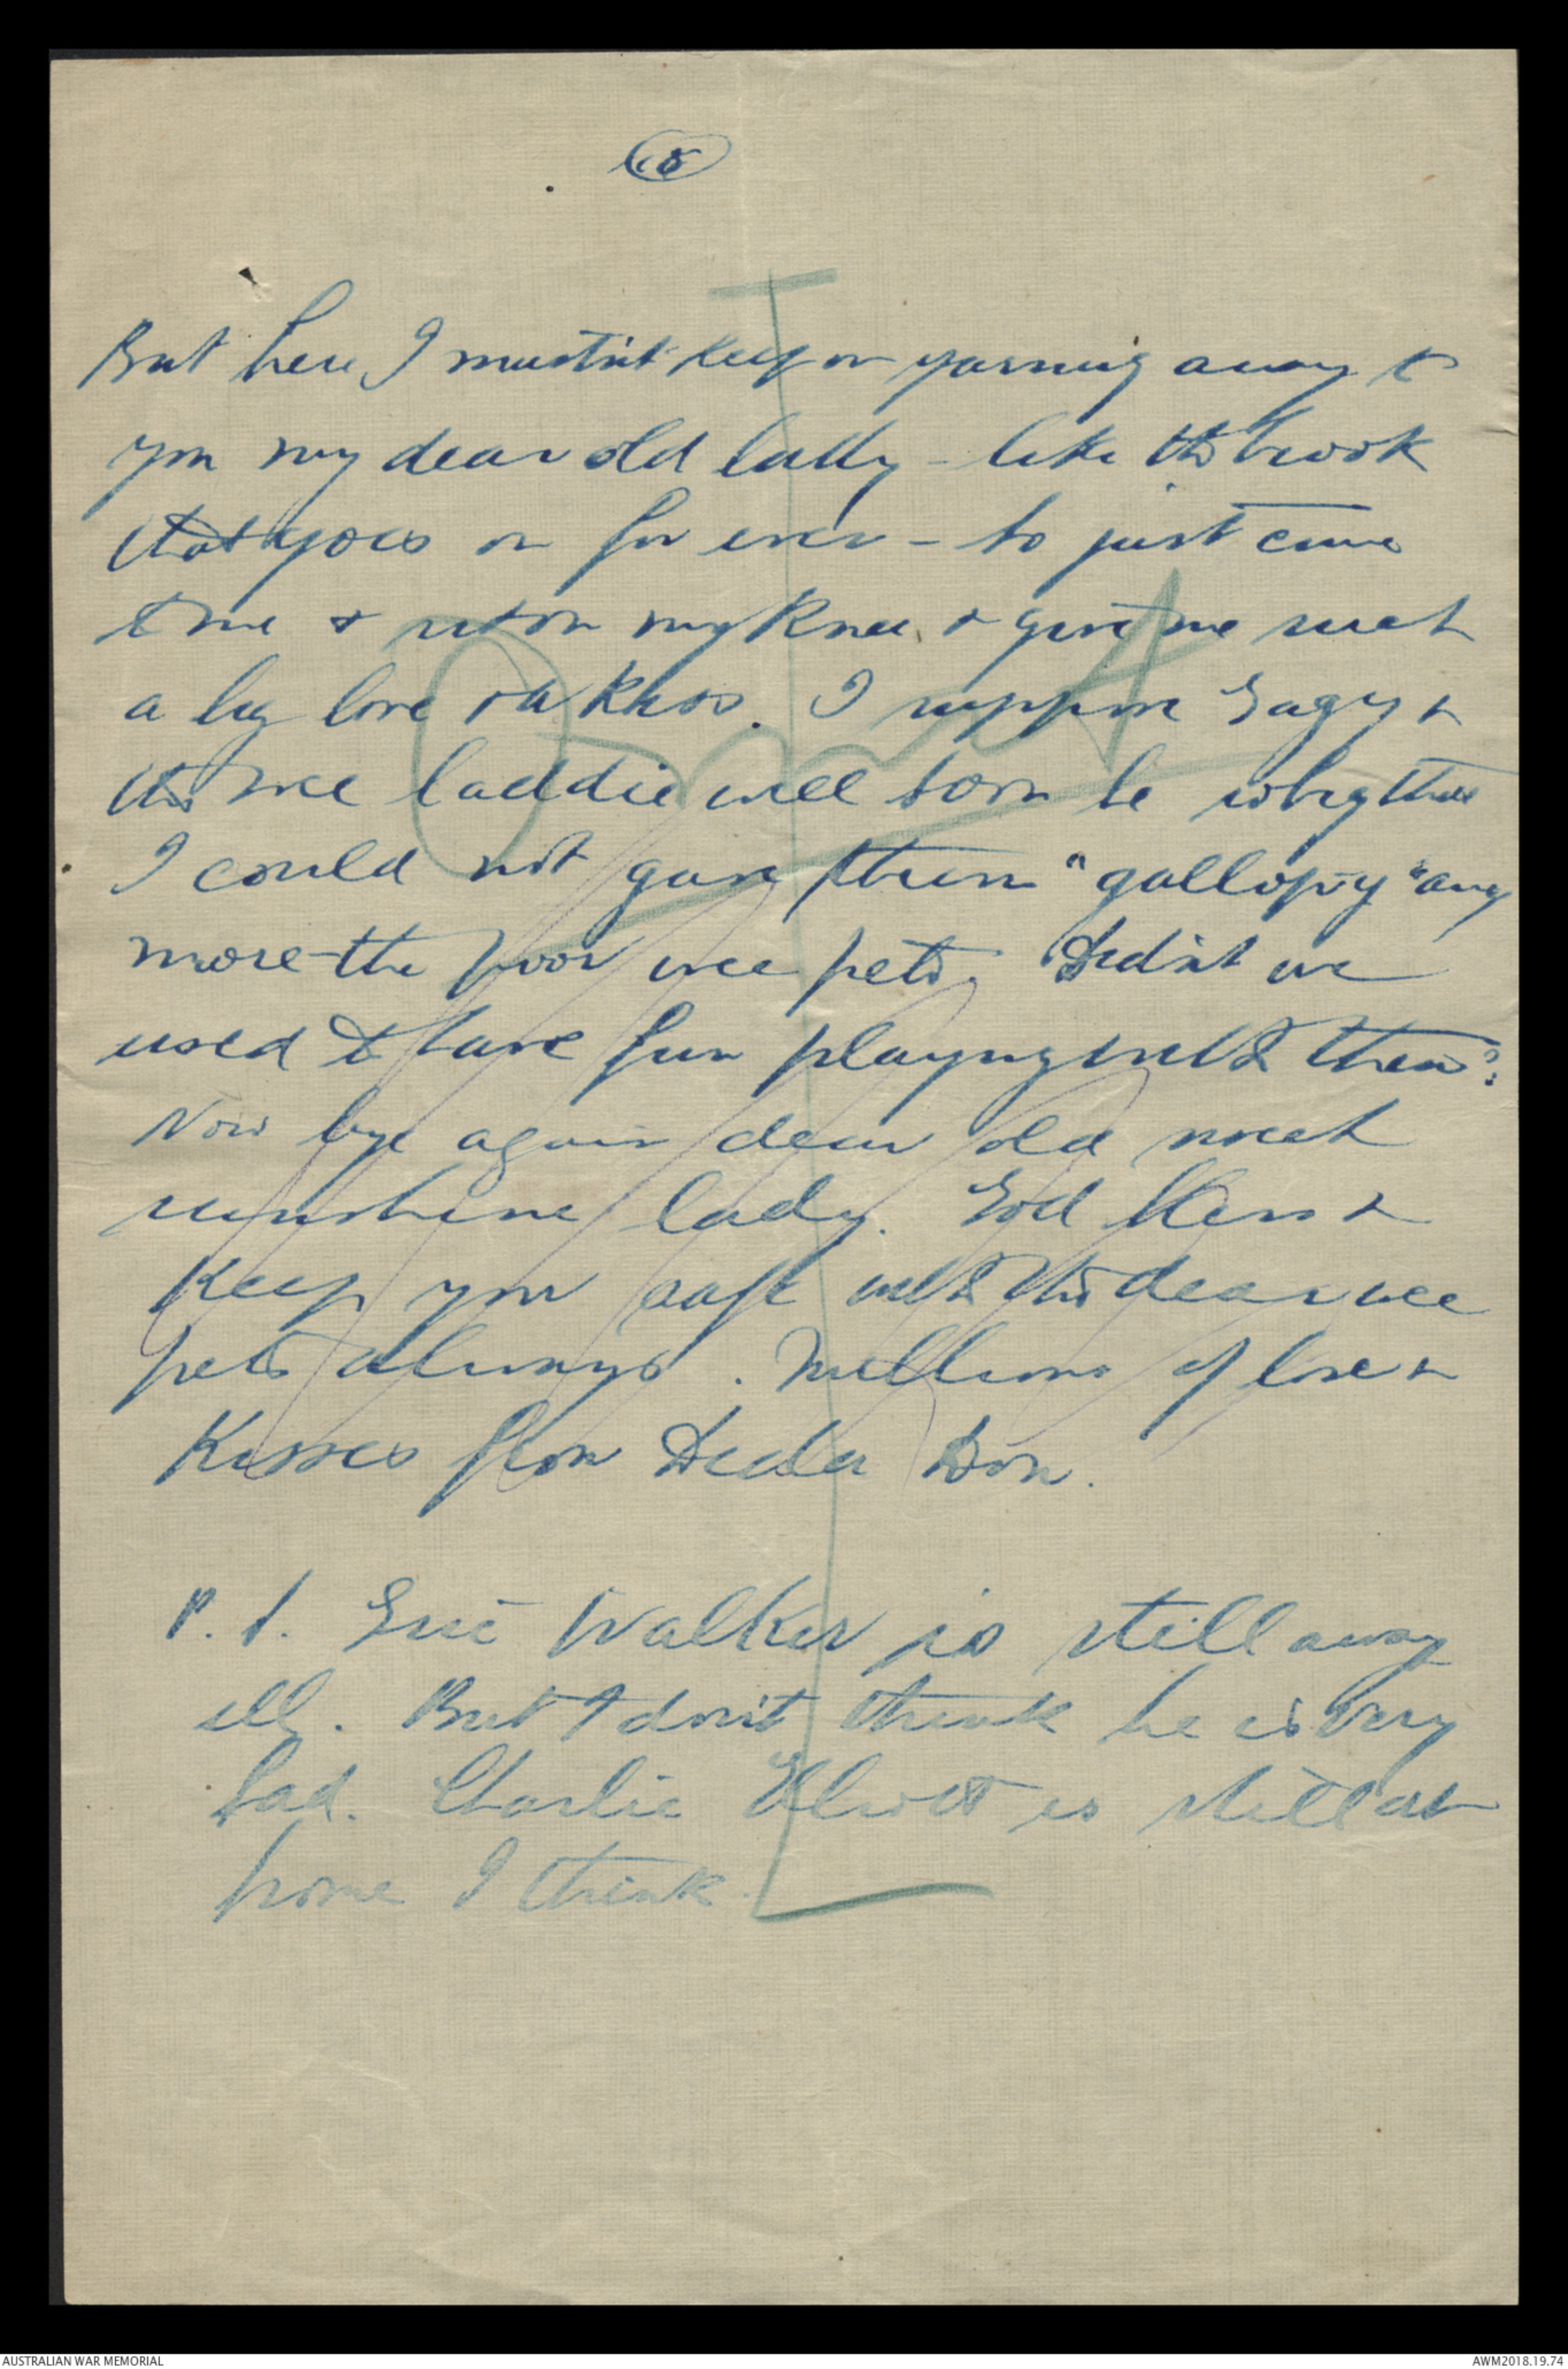 But here I mustn't keep on yarning away to
you my dear old laddy - like the brook
that goes on for ever - so just come
to me & sit on my knee & give me such
a big love & a kiss. I suppose Gagy &
the wee laddie will soon be so big that
I could not give them "gallopy" any
more - the poor wee pets. Didn't we
used to have fun playing with them?
Now bye again dear old sweet
sunshine lady. God bless &
keep you safe with the dear wee
pets always. Millions of love &
kisses from Dida Don.
P.S. Eric Walker is still away
ill. But I don't think he is very
bad. Charlie Elliott is still at
home I think.
Omit
AUSTRALIAN WAR MEMORIAL
AWM2018.19.74